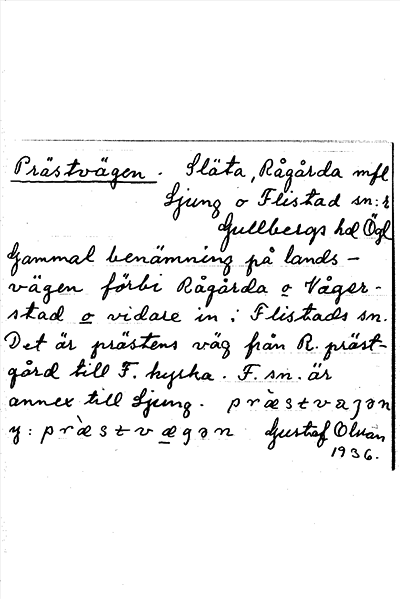 Prästvägen. Släta, Rågårda mfl
Ljung o Flistad sn:r
Gullbergs hd Ögl
Gammal benämning på lands-
vägen förbi Rågårda o Våger-
stad o vidare in i Flistads sn.
Det är prästens väg från R. präst-
gård till F. kyrka. F. sn. är
annex till Ljung. præ̀stvaɡən
y: præ̀stvæɡən Gustaf Olsson
1936.